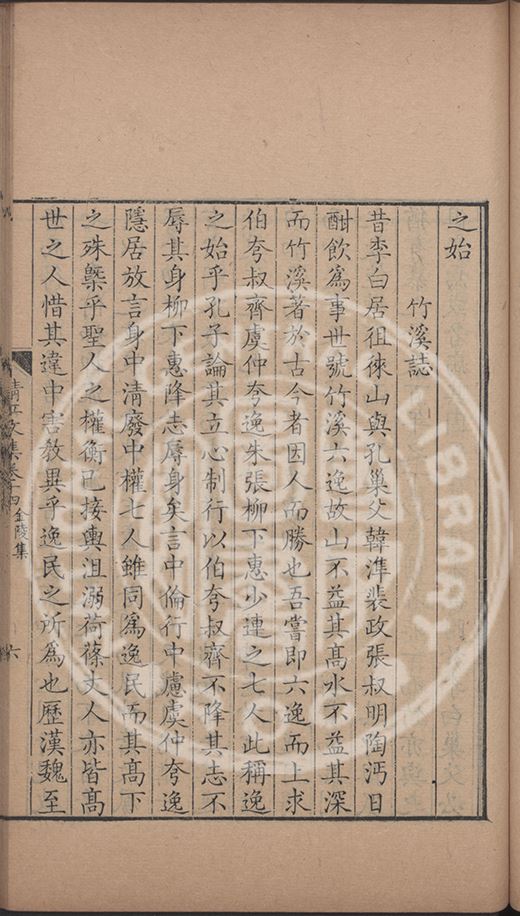 之始
竹溪誌
昔李白居徂徠山與孔巢父韓準裴政張叔明陶沔日
酣飲為事世號竹溪六逸故山不益其髙水不益其深
而竹溪著於古今者因人而勝也吾嘗即六逸而上求
伯夸叔齊虞仲夸逸朱張柳下惠少連之七人此稱逸
之始乎孔子論其立心制行以伯夸叔齊不降其志不
辱其身柳下惠降志辱身矣言中倫行中慮虞仲夸逸
隱居放言身中清廢中權七人雖同為逸民而其髙下
之殊槩乎聖人之權衡已接輿沮溺荷蓧丈人亦皆髙
世之人惜其違中害敎異乎逸民之所為也歴漢魏至
文集卷十四金陵集
六
LIBRARY